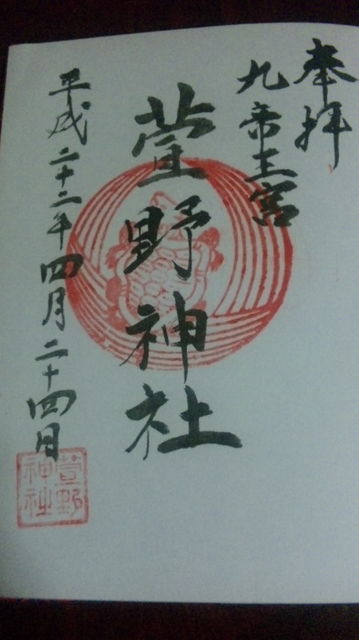 奉拝
九帝王宮
萱野神社
平成二十二年四月二十四日
萱野
神社